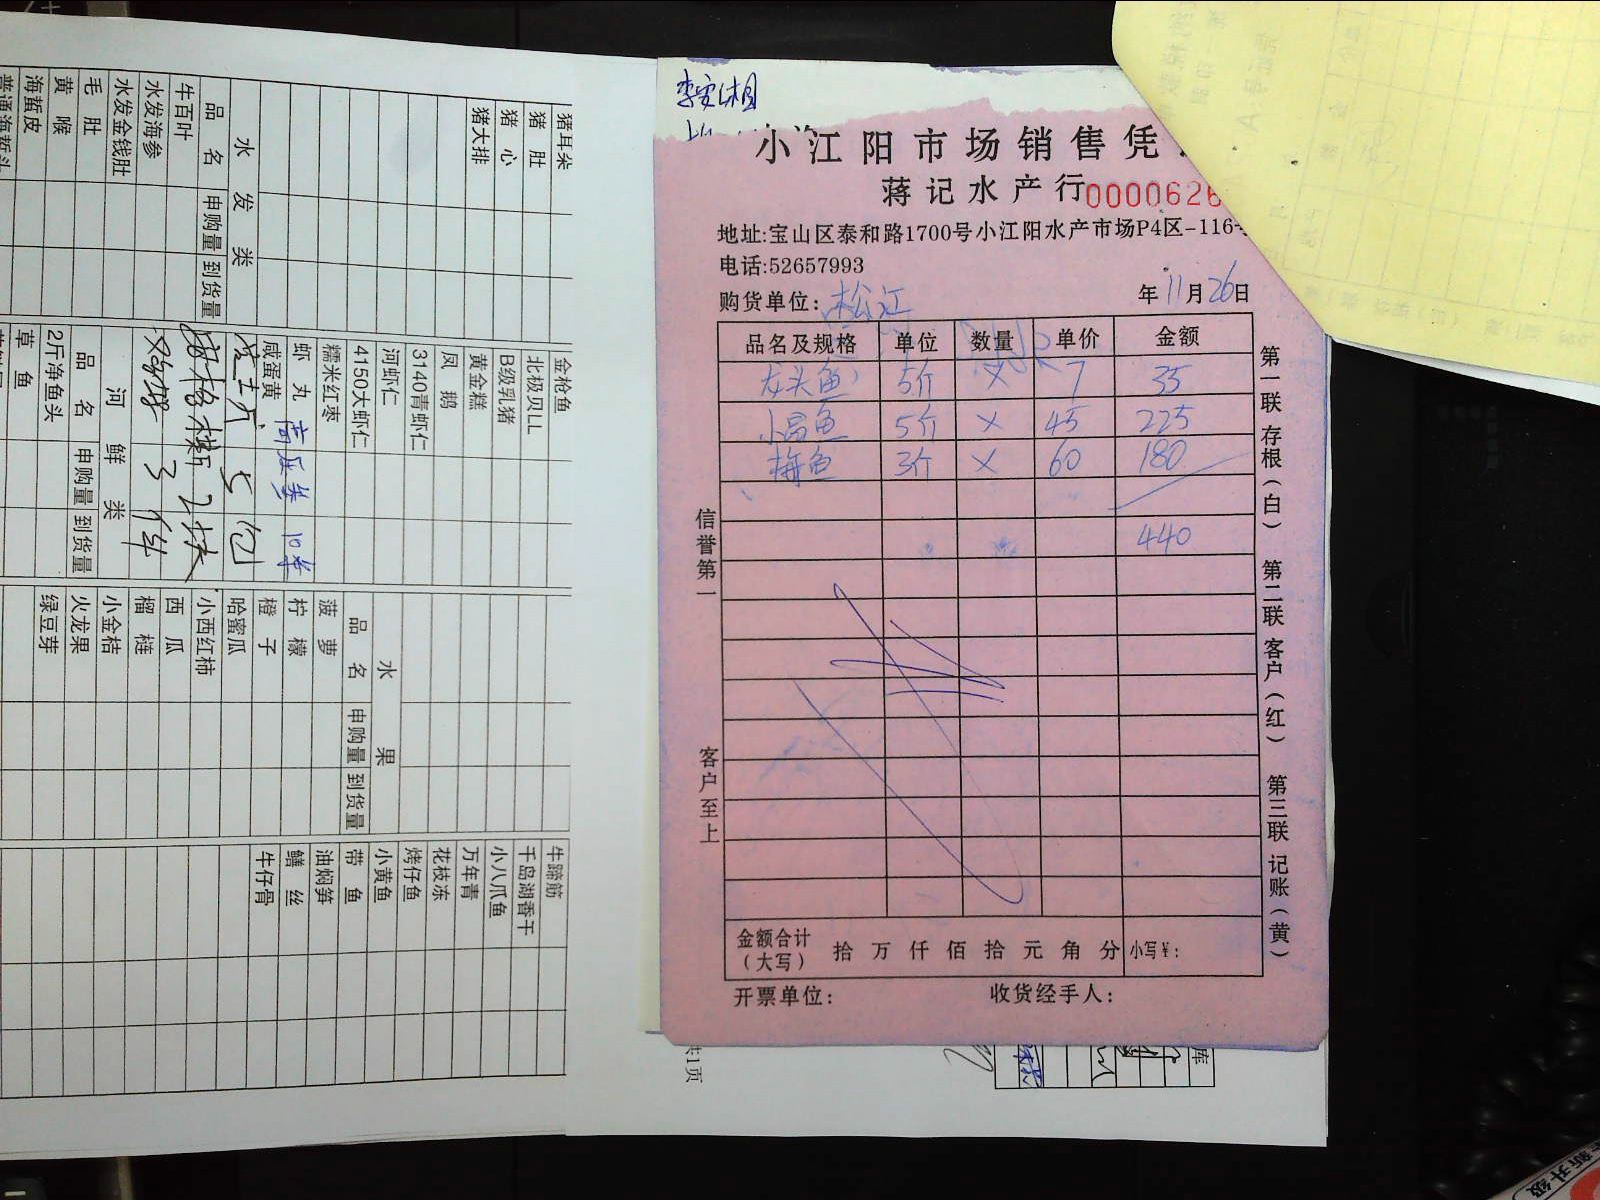 小江阳市场销售凭
蒋记水产行 0000626
地址:宝山区泰和路1700号小江阳水产市场P4区-116号
电话:52657993
购货单位: 松江
年11月26日
品名及规格 单位 数量 单价 金额
龙头鱼 5斤 × 7 35
小昌鱼 5斤 × 45 225
梅鱼 3斤 × 60 180
440
金额合计(大写) 拾 万 仟 佰 拾 元 角 分 小写¥:
开票单位: 收货经手人:
信誉第一 客户至上
第一联 存根(白) 第二联 客户(红) 第三联 记账(黄)
猪耳朵
猪肚
猪心
猪大排
水发类
品名 申购量 到货量
牛百叶
水发海参
水发金钱肚
毛肚
黄喉
海蜇皮
普通海蜇头
金枪鱼
北极贝LL
B级乳猪
黄金糕
凤鹅
3140青虾仁
河虾仁
4150大虾仁
糯米红枣
虾丸
咸蛋黄
5包
2块
3件
河鲜类
品名 申购量 到货量
2斤净鱼头
草鱼
水果
品名 申购量 到货量
菠萝
柠檬
橙子
哈蜜瓜
小西红柿
西瓜
榴梿
小金桔
火龙果
绿豆芽
牛蹄筋
千岛湖香干
小八爪鱼
万年青
花枝冻
烤仔鱼
小黄鱼
带鱼
油焖笋
鳝丝
牛仔骨
共1页
库
新升级